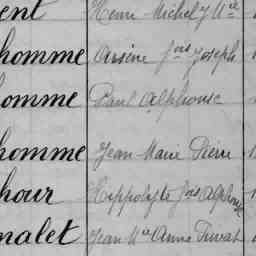 ent Henri Michel J Mie
homme Arsène fois Joseph
homme Paul Alphonse
homme Jean Marie Pierre
hour Hippolyte fois Alphonse
nalet Jean Mie Anne Privat